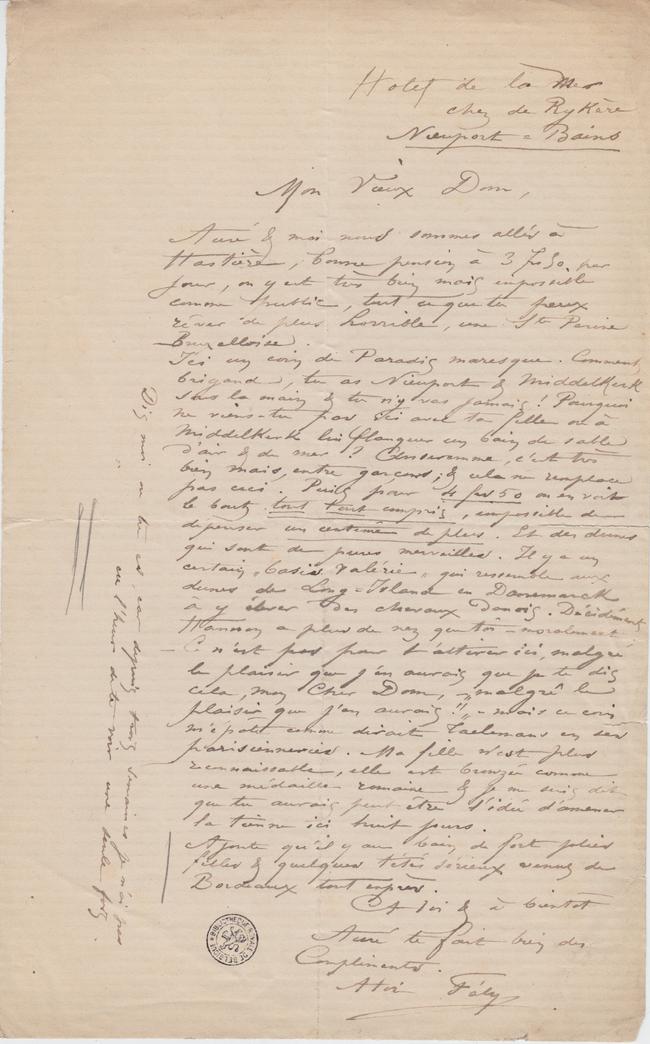 Hotel de la Mer
chez de Rykère
Nieuport-Bains
Mon Vieux Dom,
Auré & moi nous sommes allés à
Hastière, bonne pension à 3 frs 50 par
jour, on y est très bien mais impossible
comme public, tout ce que tu peux
rêver de plus horrible, une Ste Périne
Bruxelloise.
Ici un coin de Paradis maresque. Comment,
brigand, tu as Nieuport & Middelkerk
sous la main & tu n'y vas jamais ! Pourquoi
ne viens-tu pas ici avec ta fille ou à
Middelkerk lui flanquer un bain de sable
d'air & de mer ? Anseremme, c'est très
bien mais, entre garçons, & cela ne remplace
pas ceci. Puis pour 4 frs 50 on en voit
le bout, tout tout compris, impossible de
dépenser un centime de plus. Et des dunes
qui sont de pures merveilles. Il y a un
certain "oasis Valérie" qui ressemble aux
dunes de Long-Island en Danemarck
à y élever des chevaux danois. Décidément
Hannon a plus de nez que toi - moralement
Ce n'est pas pour t'attirer ici, malgré
le plaisir que j'en aurais que je te dis
cela, mon cher Dom, - "malgré le
plaisir que j'en aurais !!" - mais ce coin
m'épate comme dirait Taelemans en ses
parisienneries. Ma fille n'est plus
reconnaissable, elle est bronzée comme
une médaille romaine & je me suis dit
que tu aurais peut être l'idée d'amener
la tienne ici huit jours.
Ajoute qu'il y a au bain de fort jolies
filles & quelques tétés sérieux venus de
Bordeaux tout exprès.
A toi & à bientôt
Auré te fait bien des
Compliments.
A toi Fély
Dis moi où tu es car depuis trois semaines je n'ai pas
eu l'heur de te voir une seule fois.
BIBLIOTHÈQUE ROYALE DE BELGIQUE